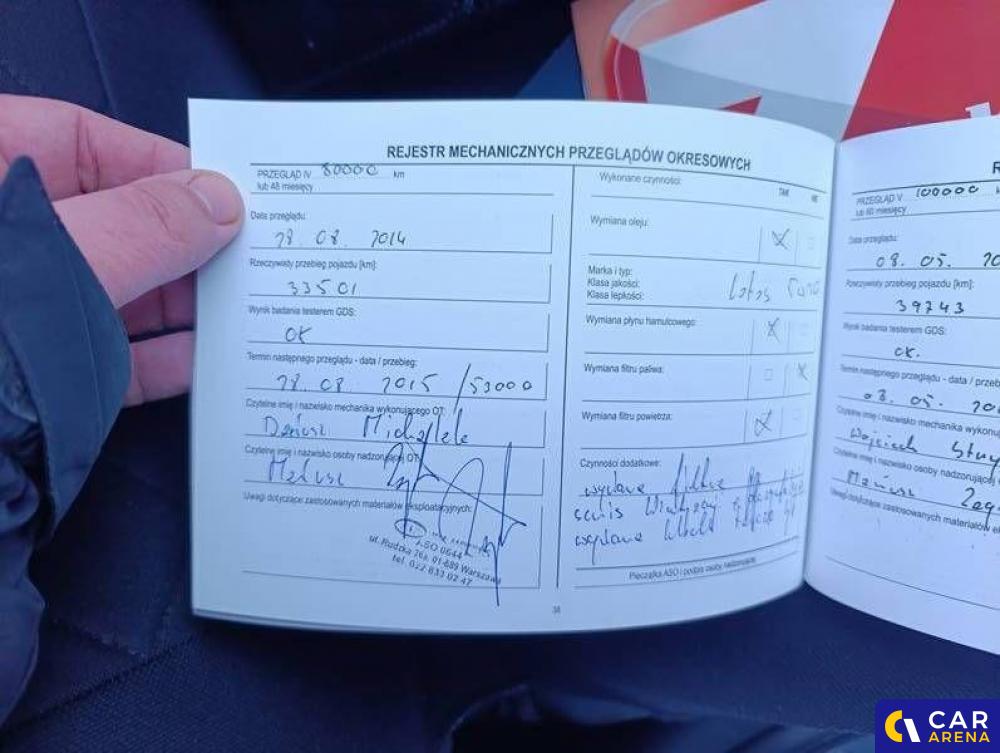 REJESTR MECHANICZNYCH PRZEGLĄDÓW OKRESOWYCH
PRZEGLĄD IV 80000 km
lub 48 miesięcy
Data przeglądu:
28.08.2014
Rzeczywisty przebieg pojazdu [km]:
33501
Wynik badania testerem GDS:
OK
Termin następnego przeglądu - data / przebieg:
28.08.2015/53000
Czytelne imię i nazwisko mechanika wykonującego OT:
Czytelne imię i nazwisko osoby nadzorującej OT:
Mariusz
Uwagi dotyczące zastosowanych materiałów eksploatacyjnych:
ASO 0644
ul. Rudzka 26a, 01-689 Warszawa
tel. 022 833 02 47
Wykonane czynności:
TAK
Wymiana oleju:
Marka i typ:
Klasa jakości:
Klasa lepkości:
Lotos
Wymiana płynu hamulcowego:
Wymiana filtru paliwa:
Wymiana filtru powietrza:
Czynności dodatkowe:
Pieczątka ASO i podpis osoby nadzorującej
38
R
PRZEGLĄD V 100000
lub 60 miesięcy
Data przeglądu:
08.05. 20
Rzeczywisty przebieg pojazdu [km]:
39743
Wynik badania testerem GDS:
OK.
Termin następnego przeglądu - data / przeb
08.05. 20
Czytelne imię i nazwisko mechanika wykonu
Wojciech
Czytelne imię i nazwisko osoby nadzorującej
Mariusz
Uwagi dotyczące zastosowanych materiałów e
CAR
ARENA